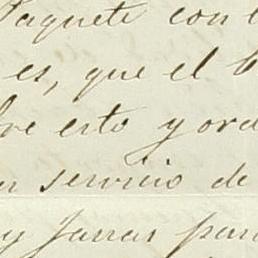 Paquete con
es, que el
re esto y ord
servicio de
y Jarras par